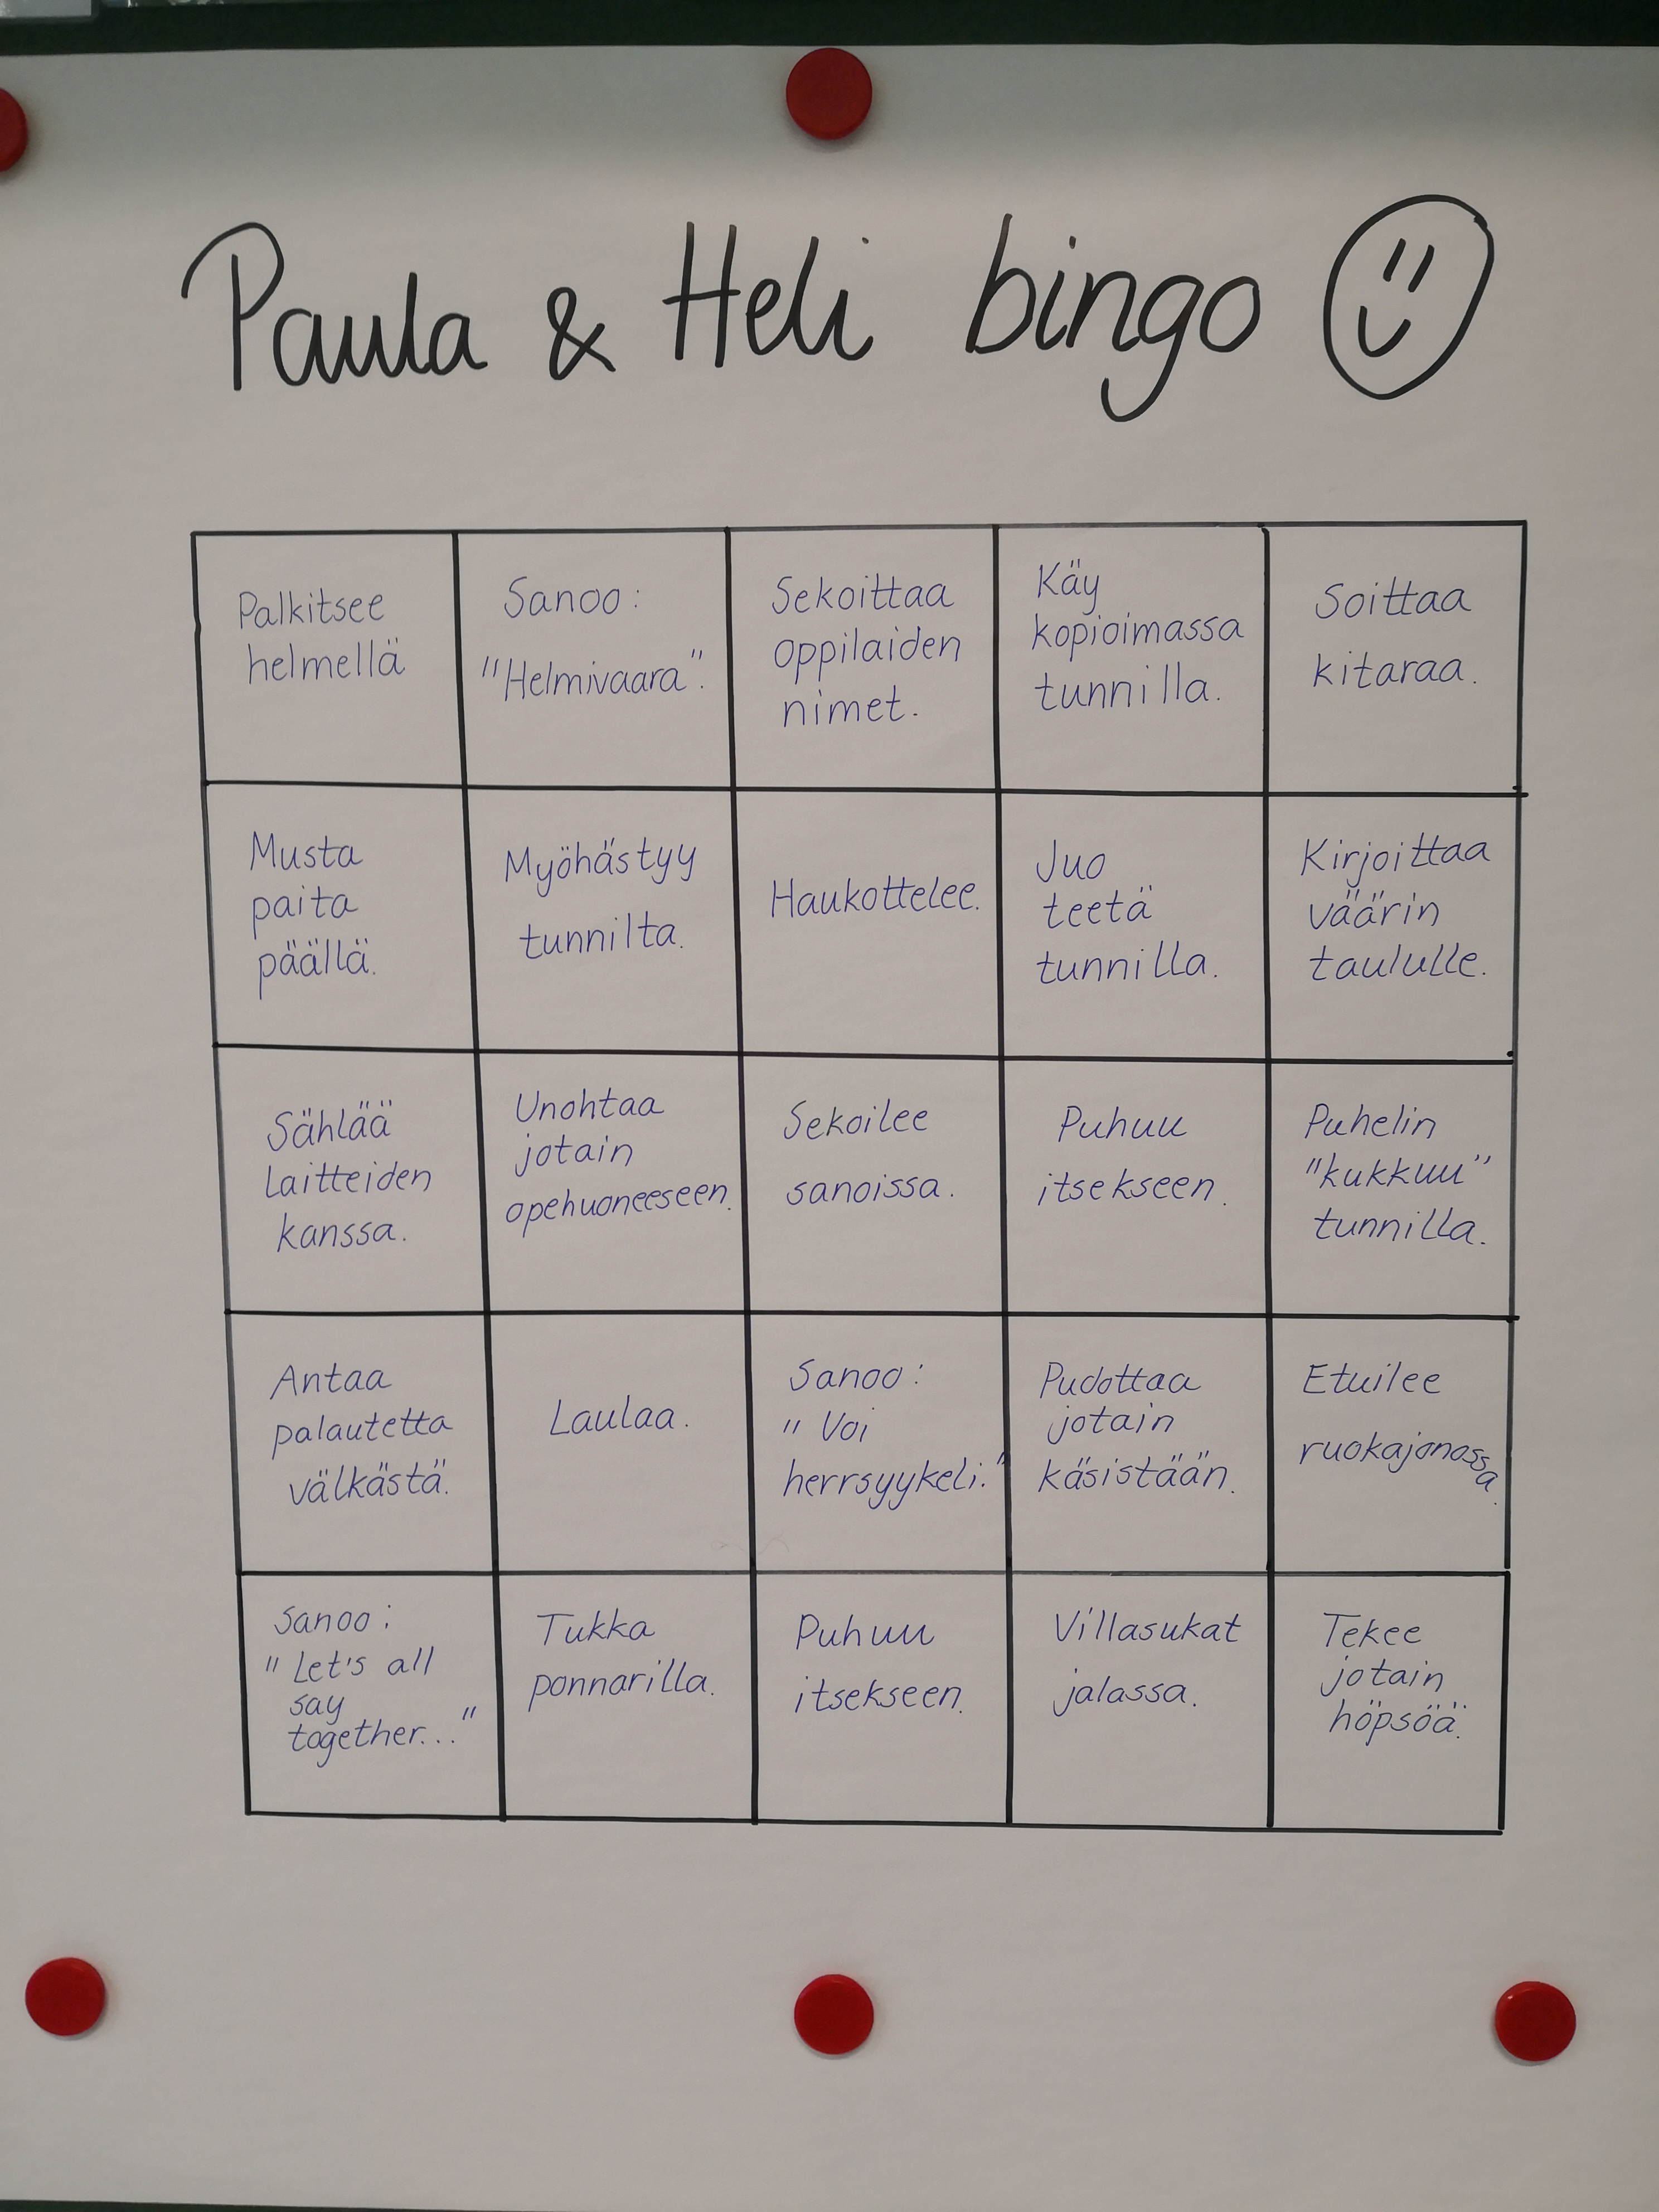 Paula & Heli bingo
Palkitsee
helmellä
Sanoo:
"Helmivaara".
Sekoittaa
oppilaiden
nimet.
Käy
kopioimassa
tunnilla.
Soittaa
kitaraa.
Musta
paita
päällä.
Myöhästyy
tunnilta.
Haukottelee.
Juo
teetä
tunnilla.
Kirjoittaa
väärin
taululle.
Sählää
laitteiden
kanssa.
Unohtaa
jotain
opehuoneeseen.
Sekoilee
sanoissa.
Puhuu
itsekseen.
Puhelin
"kukkuu"
tunnilla.
Antaa
palautetta
välkästä.
Laulaa.
Sanoo:
"Voi
herrsyykeli."
Pudottaa
jotain
käsistään.
Etuilee
ruokajonossa.
Sanoo:
"Let's all
say
together..."
Tukka
ponnarilla.
Puhuu
itsekseen.
Villasukat
jalassa.
Tekee
jotain
höpsöä.